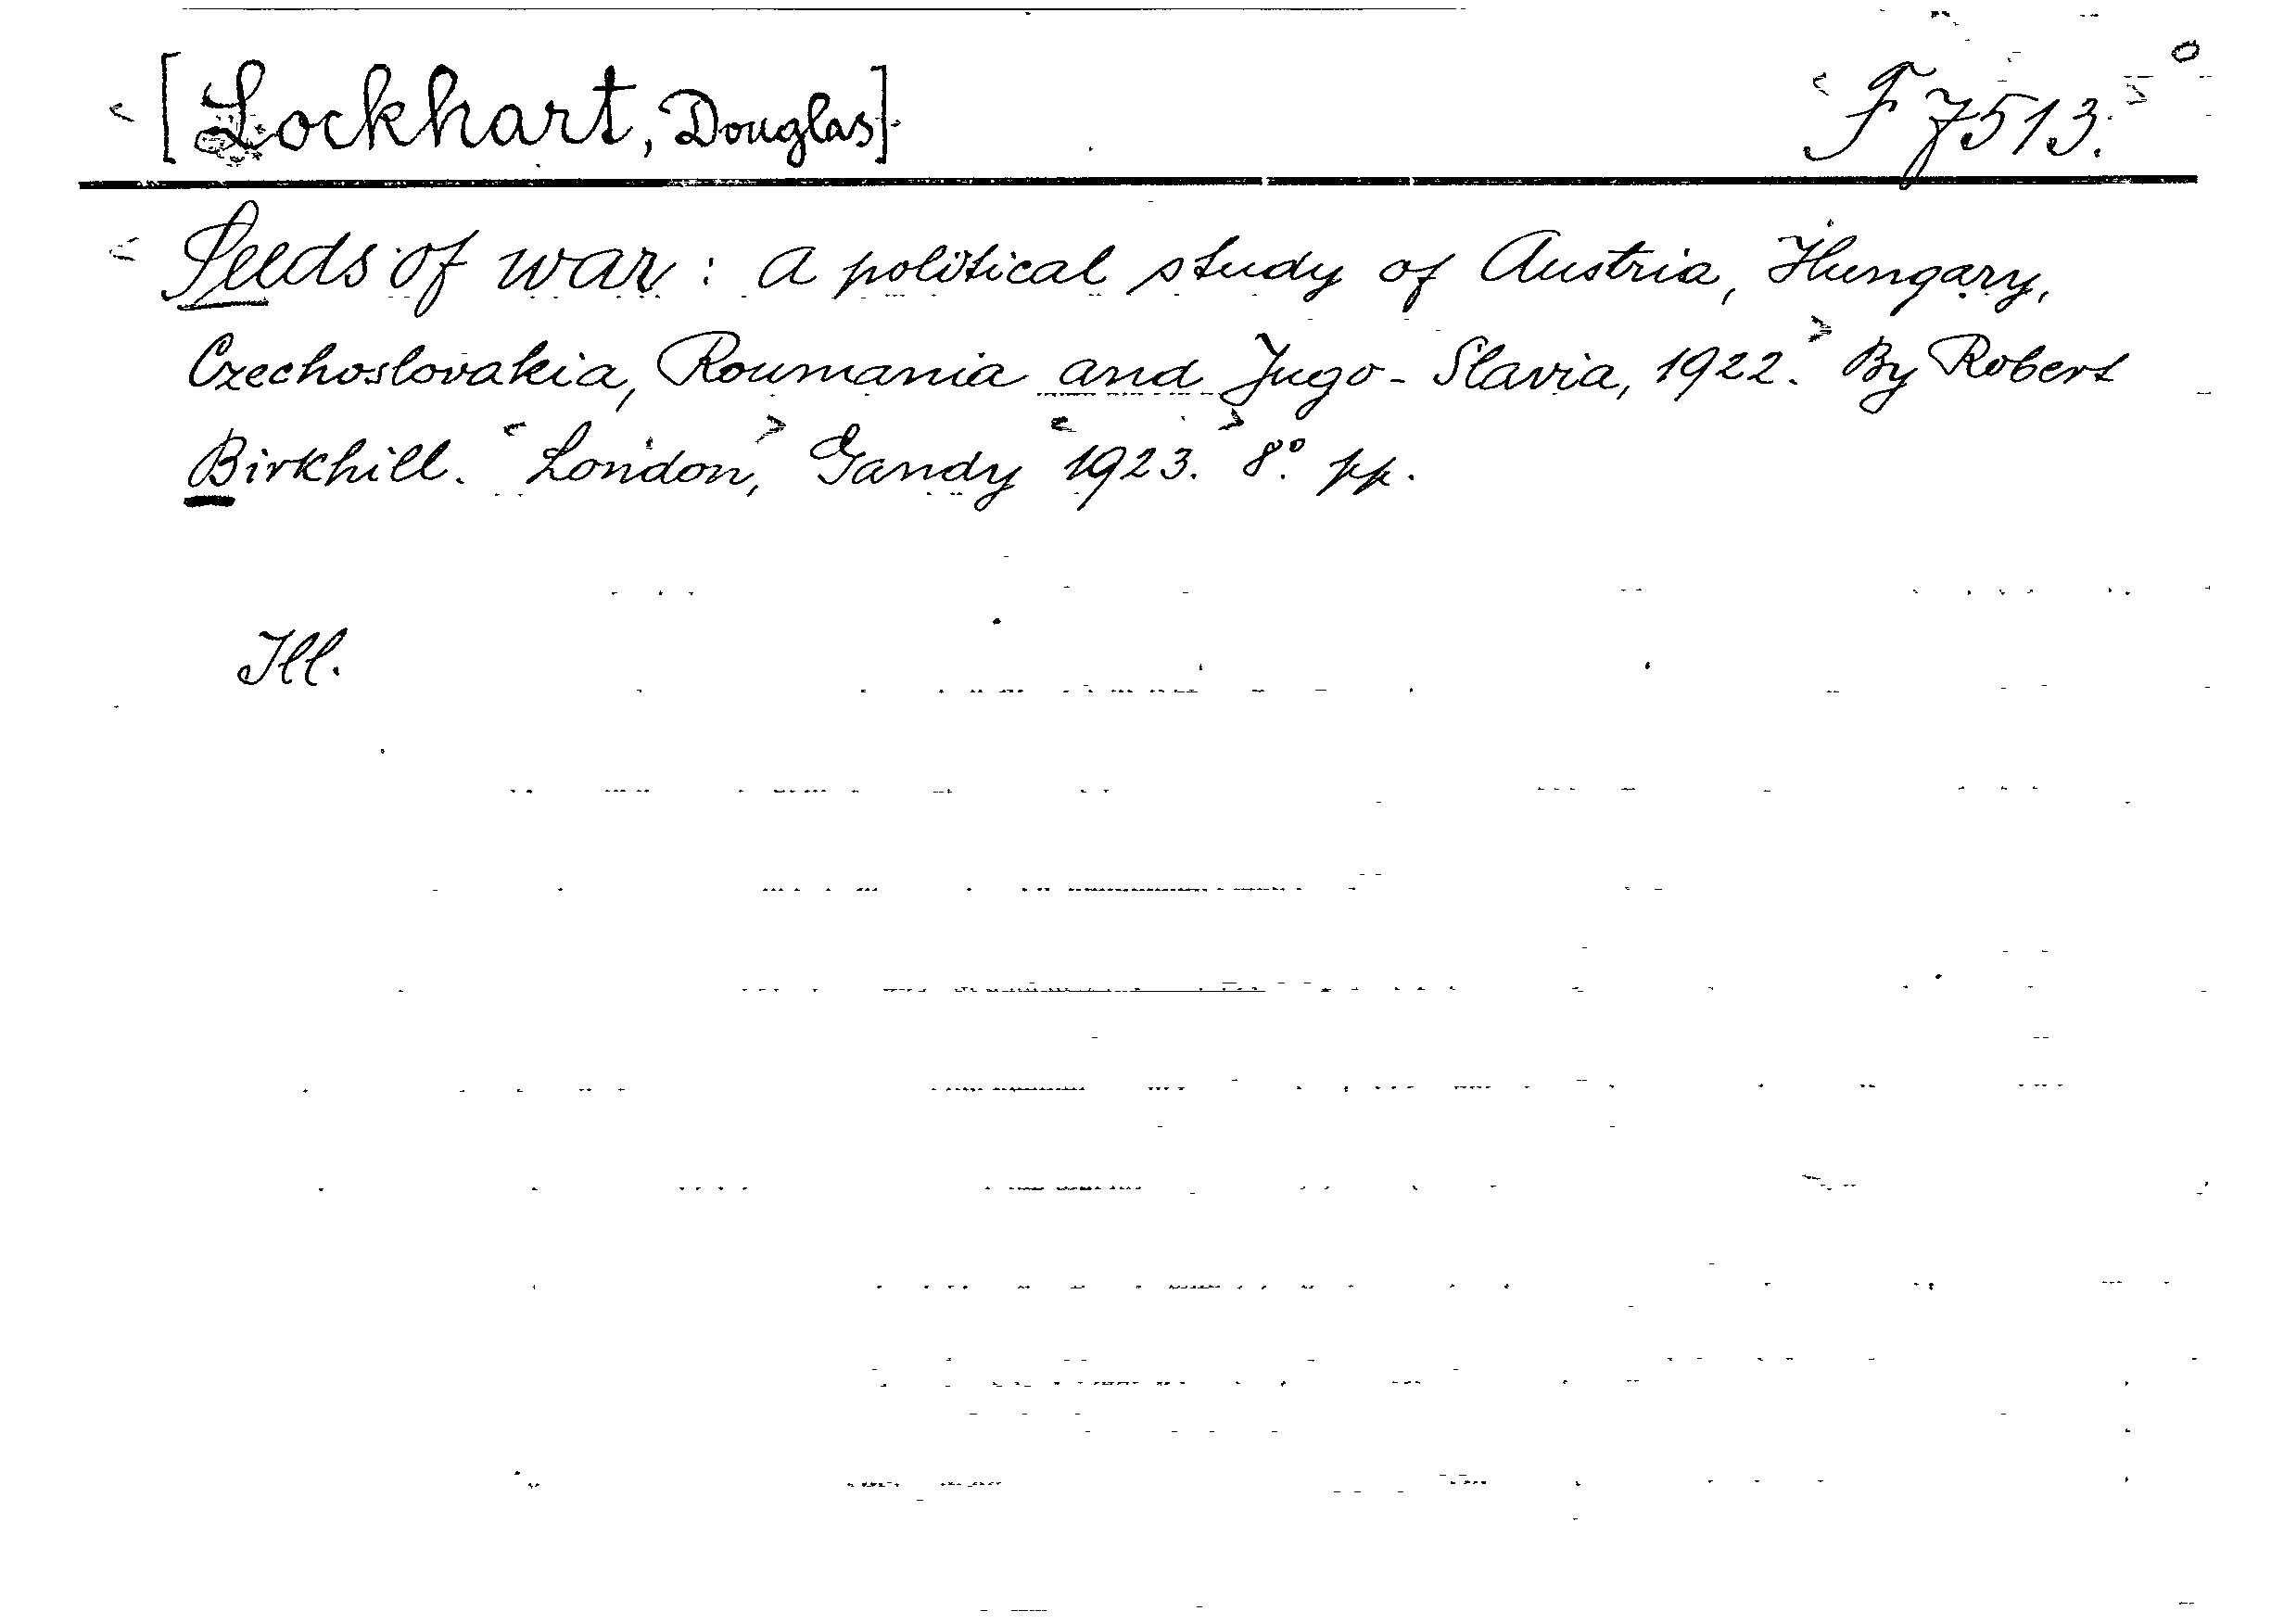 <[Lockhart, Douglas]. <F 7513.> 0
<Seeds of war: a political study of Austria, Hungary,
Czechoslovakia, Roumania and Jugo-Slavia, 1922.> By Robert
Birkhill. <London,> Gandy <1923.> 8º. pp.
Ill.